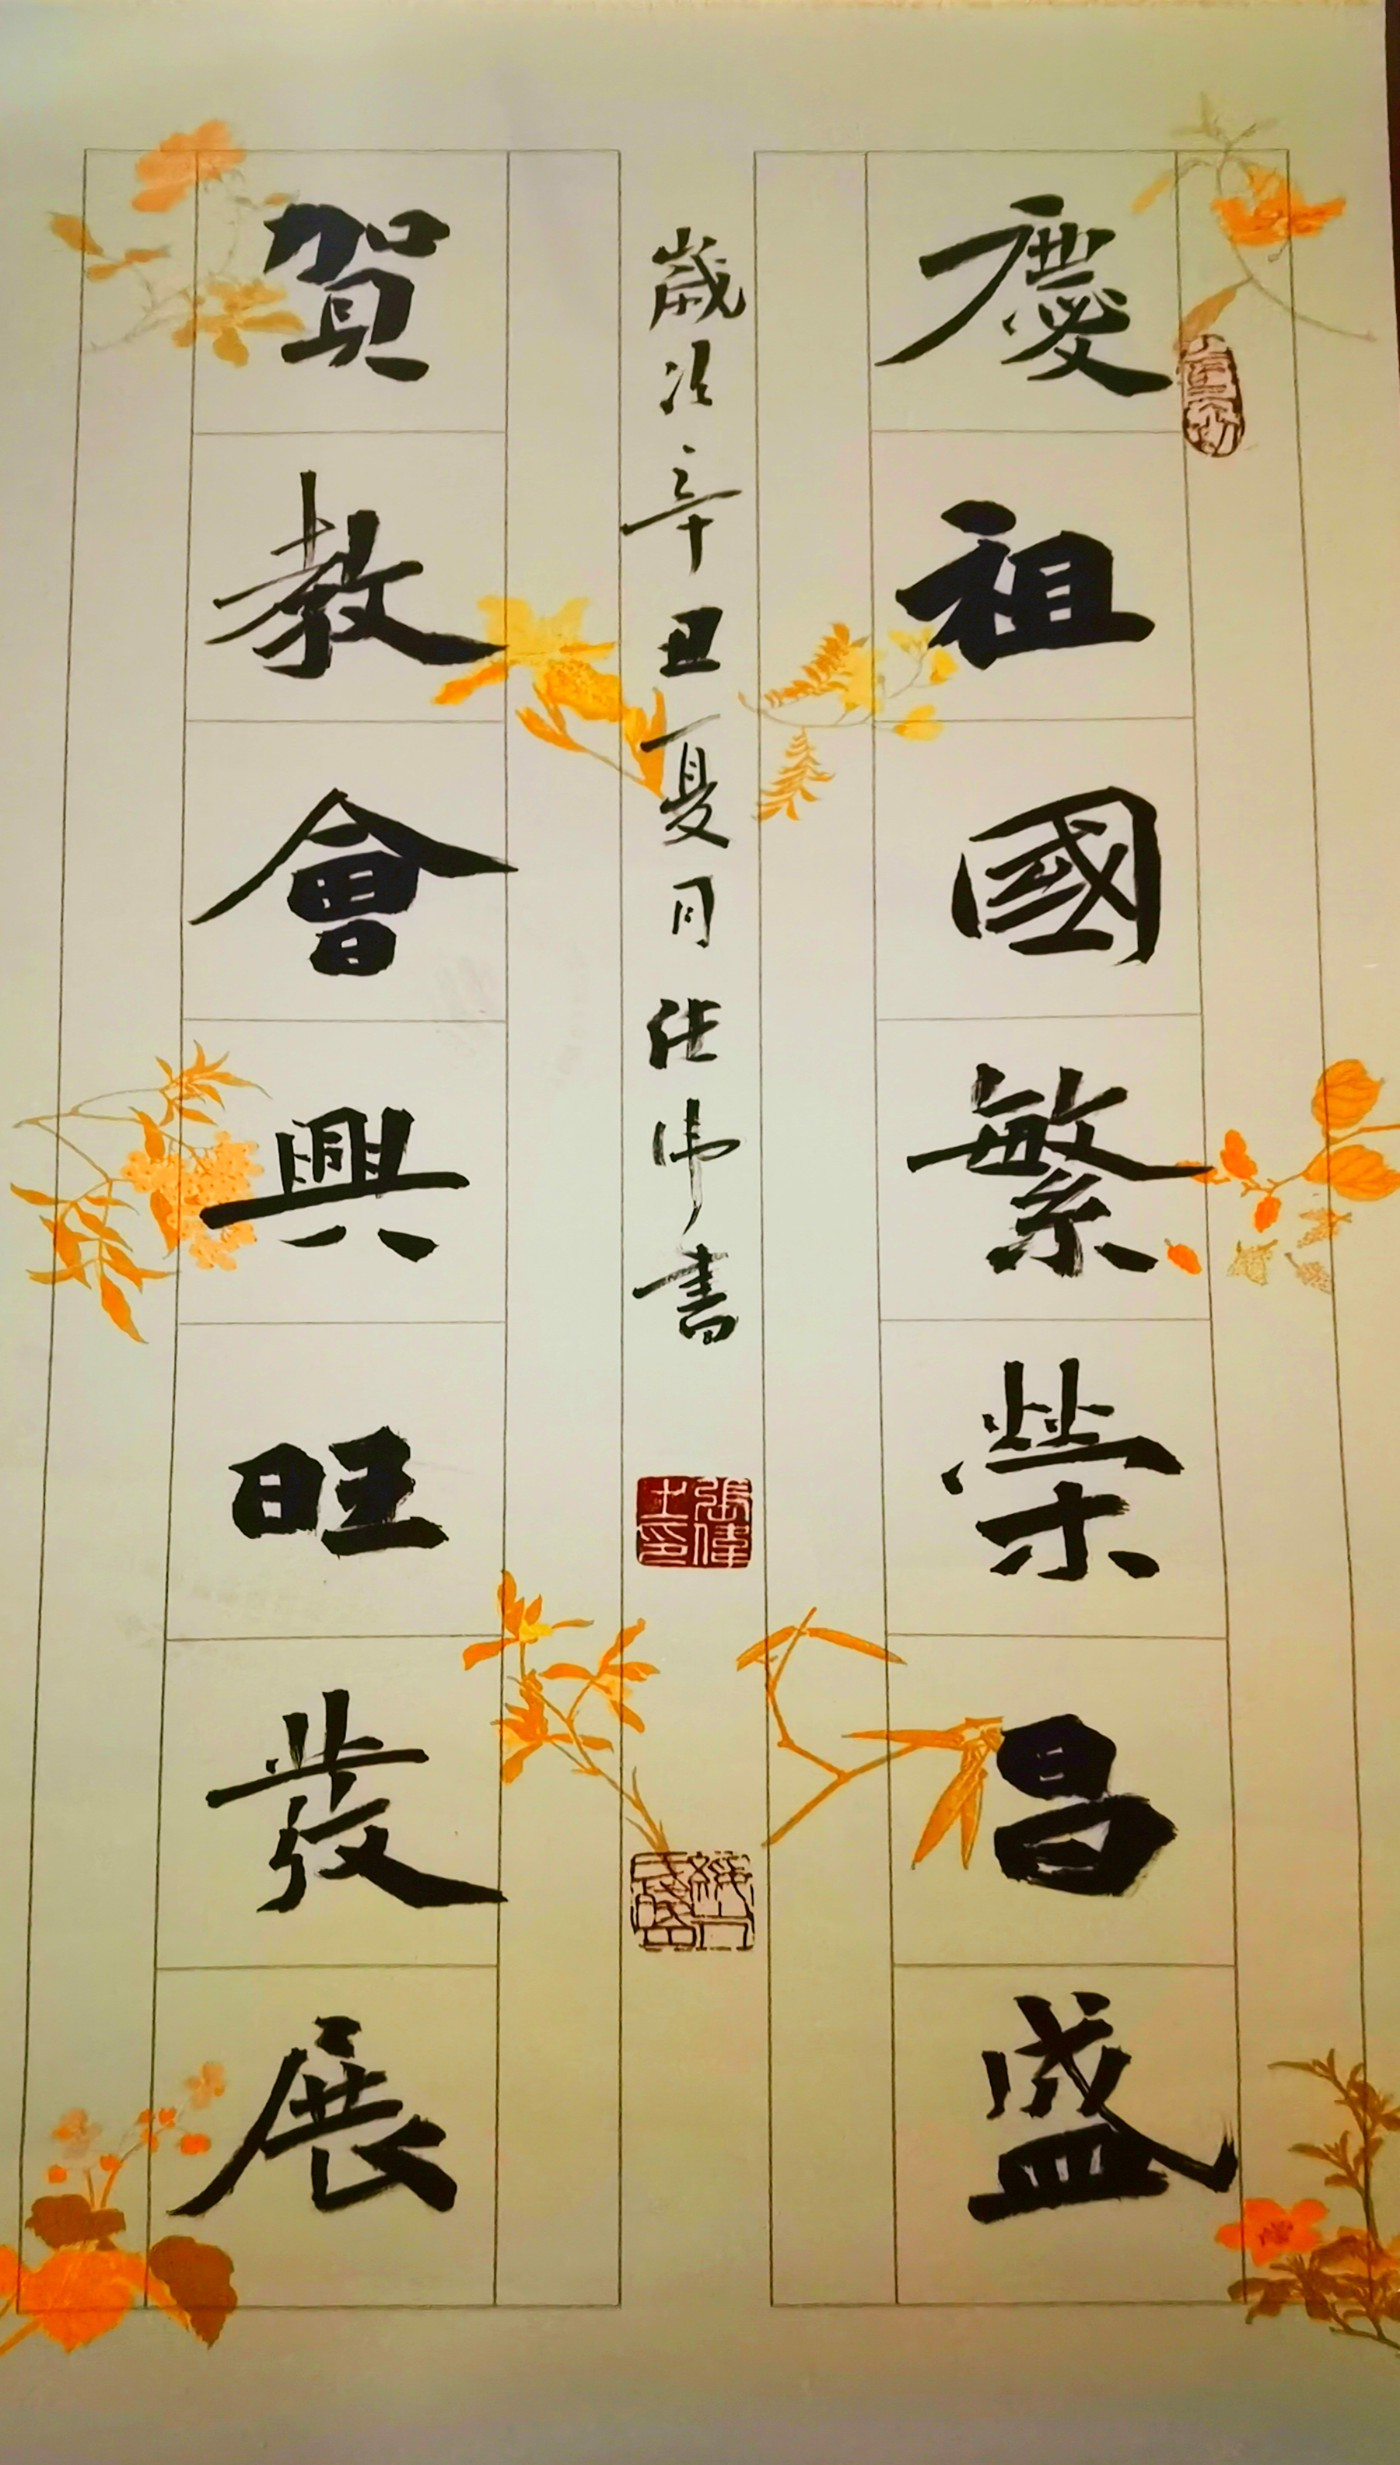 慶祖國繁榮昌盛
歲次辛丑夏月張偉書
賀教會興旺發展
張偉之印